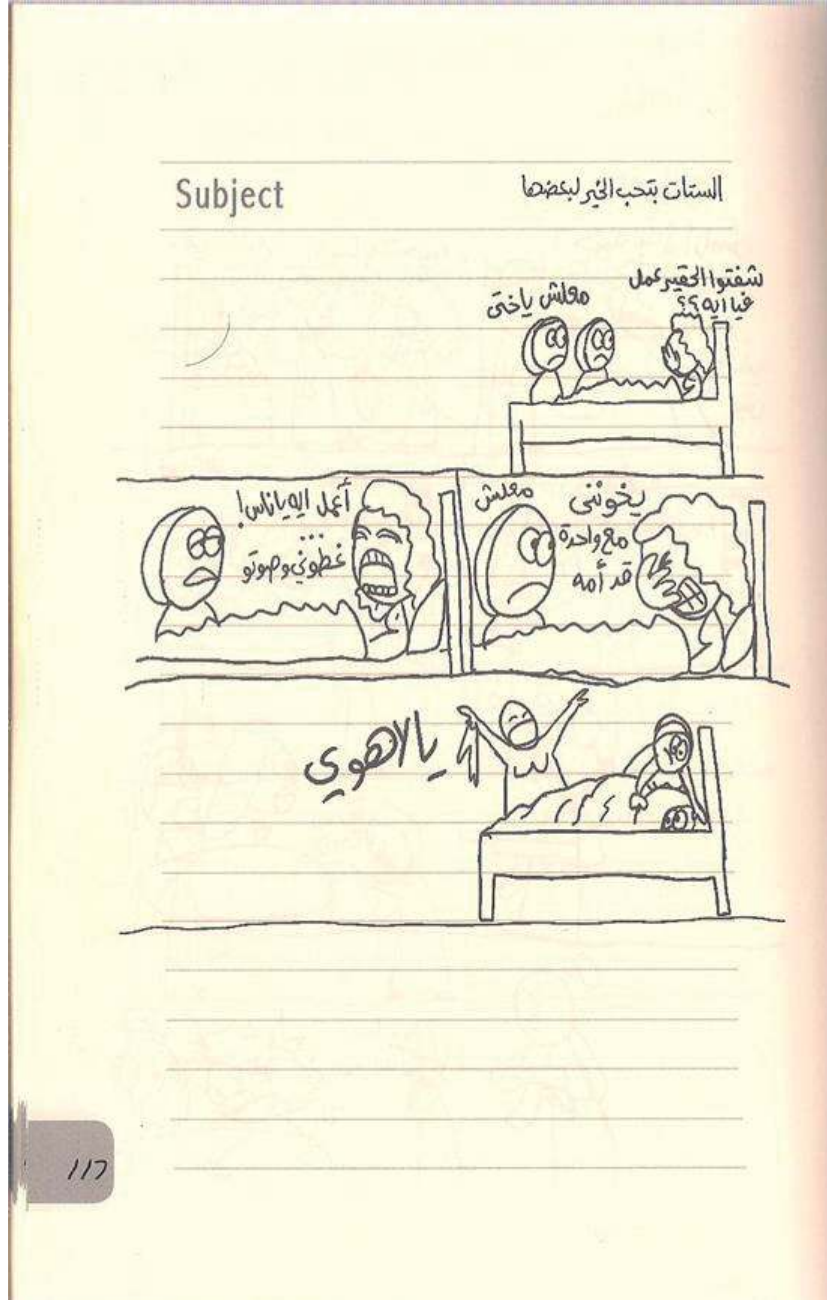 Subject
الستات بتحب الخير لبعضها
شفتوا الحقير عمل
فيا ايه؟؟
معلش ياختى
يخونني
مع واحدة
قد أمه
معلش
أعمل ايه ياناس!
...
غطوني وصوتو
يالاهوي
117